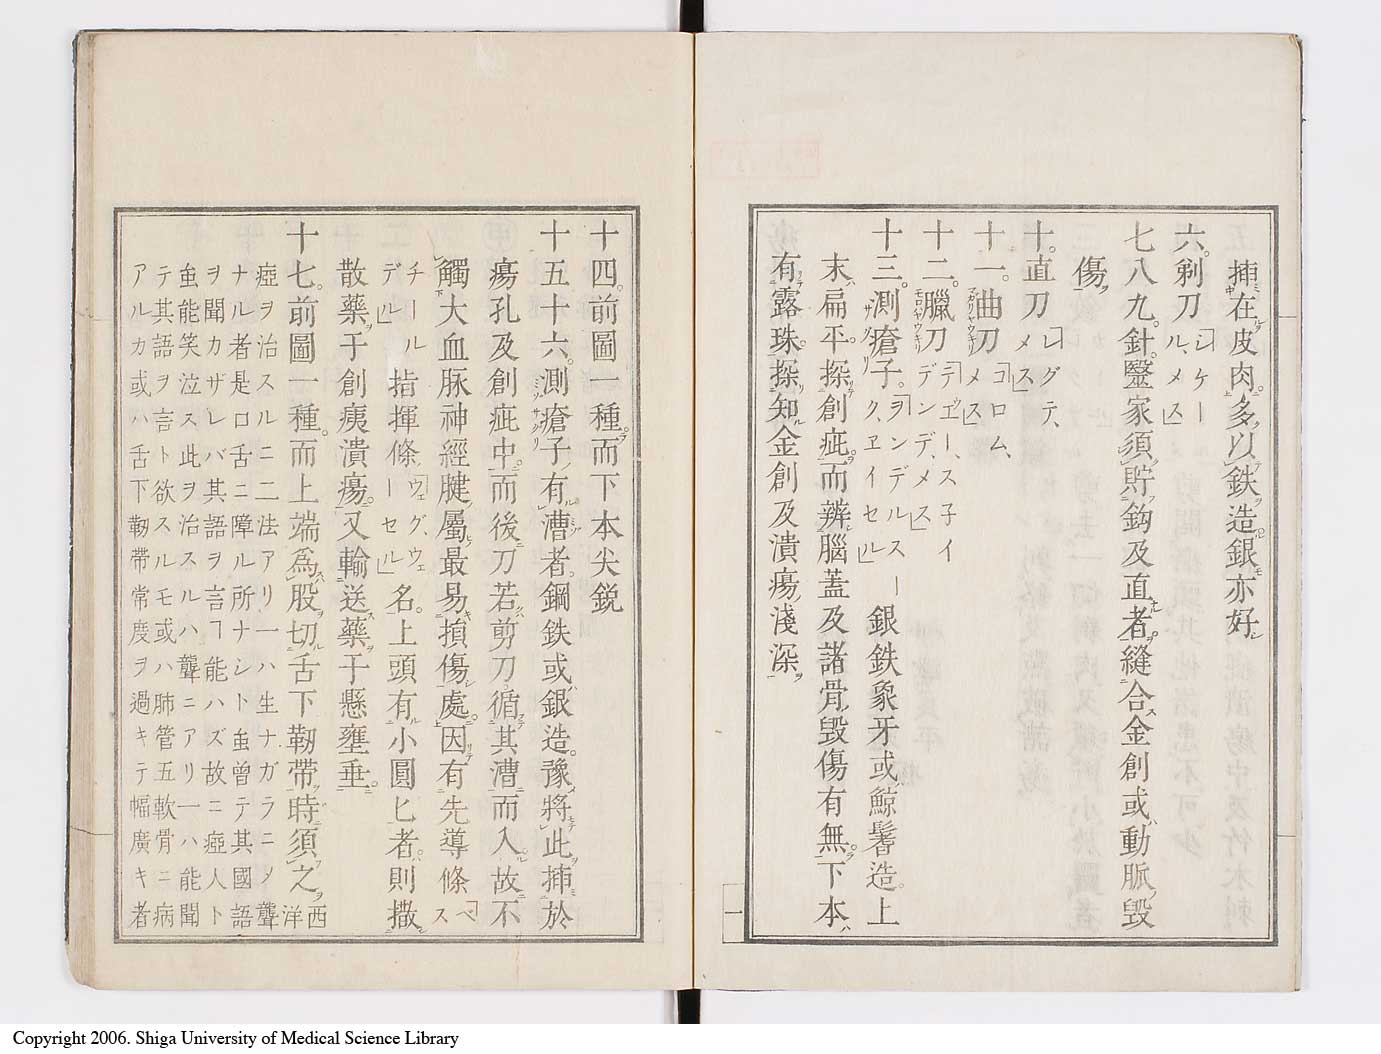 揷在皮肉多以鉄造銀亦好
六。剃刀「シケールメス」
七八九。針。醫家須貯鈎及直者縫合金創或動脈毀
傷
十。直刀「レグテ、メス」
十一。曲刀「コロム、メス」
十二。臘刀「テヱー、ス子イデンデ、メス」
十三。測瘡子。「ヲンデルスーク、ヱイセル」銀鉄象牙或鯨鬐造。上
末扁平。探創疵而辨腦蓋及諸骨毀傷有無下本
有露珠。探知金創及潰瘍淺深
十四。前圖一種。而下本尖銳
十五十六。測瘡子有漕者。鋼鉄或銀造。豫將此揷於
瘍孔及創疵中。而後刀若剪刀循其漕而入。故不
觸大血脉神經腱屬最易損傷處。因有先導條「ベス
チールデル」指揮條「ウェグ、ウェーセル」名。上頭有小圓匕者。則撒
散藥于創痍潰瘍。又輸送藥于懸壅垂。
十七。前圖一種。而上端爲股切舌下靱帶時須之 西洋
瘂ヲ治スルニ二法アリ一ハ生ナガラニメ聾
ナル者是ロ舌ニ障ル所ナシト虽曽テ其國語
ヲ聞カザレバ其語ヲ言ヿ能ハズ故ニ瘂人ト
虽能笑泣ス此ヲ治スルハ聾ニアリ一ハ能聞
テ其語ヲ言ト欲スルモ或ハ肺管五軟骨ニ病
アルカ或ハ舌下靱帶常度ヲ過キテ幅廣キ者
一
Copyright 2006. Shiga University of Medical Science Library